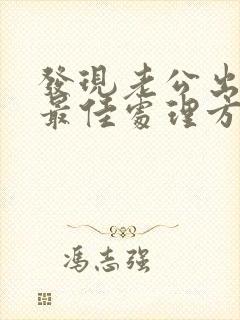 發現老公出
最佳處理方
馮志强